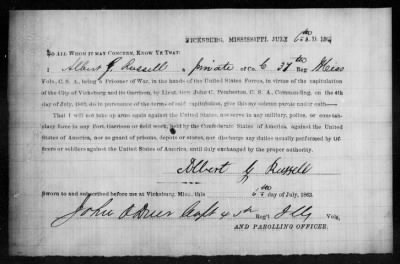 VICKSBURG, MISSISSIPPI, JULY 6th A. D. 1863
TO ALL WHOM IT MAY CONCERN, KNOW YE THAT:
I Albert G Russell a Private of Co. C 37th Reg. Miss
Vols, C. S. A., being a Prisoner of War, in the hands of the United States Forces, in virtue of the capitulation
of the City of Vicksburg and its Garrison, by Lieut. Gen. John C. Pemberton, C. S. A. Commanding, on the 4th
day of July, 1863, do in pursuance of the terms of said capitulation, give this my solemn parole under oath—
That I will not take up arms again against the United States, nor serve in any military, police, or constabulary force in any Fort, Garrison or field work, held by the Confederate States of America, against the United
States of America, nor as guard of prisons, depots or stores, nor discharge any duties usually performed by Officers or soldiers against the United States of America, until duly exchanged by the proper authority.
Albert G Russell
Sworn to and subscribed before me at Vicksburg, Miss., this 6th day of July, 1863.
John Capt 45th Reg't Ills Vols,
AND PAROLLING OFFICER.